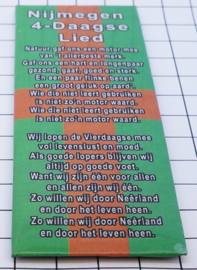 Nijmegen
4-Daagse
Lied
Natuur gaf ons een motor mee
van 't allerbeste merk.
Gaf ons een hart en longenpaar
gezond, gaaf, goed en sterk.
En een paar flinke benen
een groot geluk op aard'.
Wie die niet leert gebruiken
is niet zo'n motor waard.
Wie die niet leert gebruiken
is niet zo'n motor waard.
Wij lopen de Vierdaagse mee
vol levenslust en moed.
Als goede lopers blijven wij
altijd op goede voet.
Want wij zijn één voor allen
en allen zijn wij één.
Zo willen wij door Neêrland
en door het leven heen.
Zo willen wij door Neêrland
en door het leven heen.